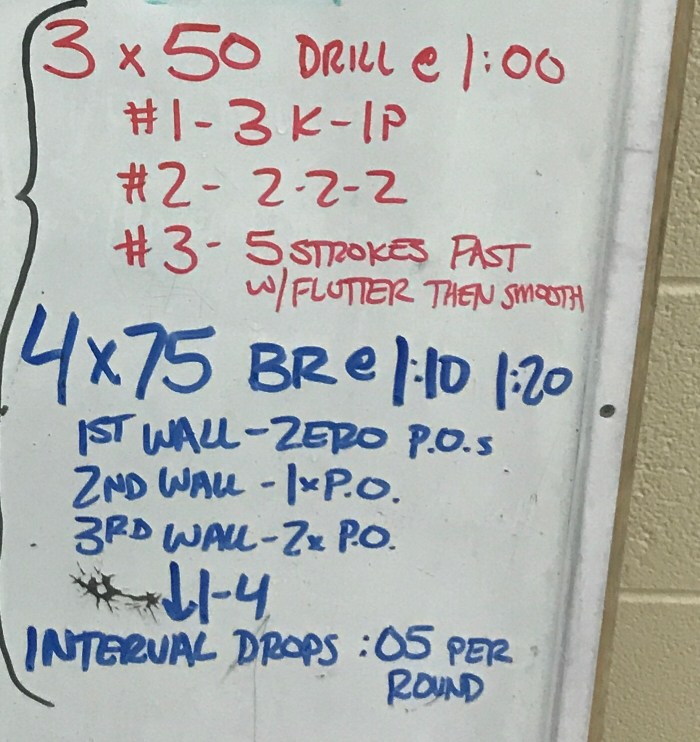 3 x 50 DRILL @ 1:00
#1- 3K-1P
#2- 2-2-2
#3- 5 STROKES FAST
W/FLUTTER THEN SMOOTH
4x75 BR @ 1:10 1:20
1ST WALL - ZERO P.O.s
2ND WALL - 1xP.O.
3RD WALL - 2x P.O.
↓1-4
INTERVAL DROPS :05 PER
ROUND